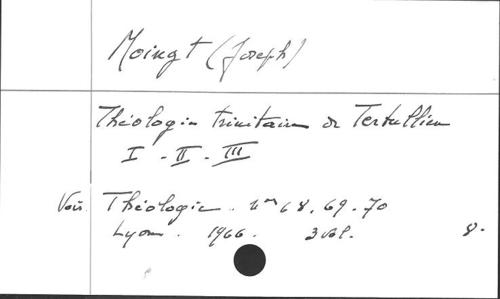 Moingt (Joseph)
Théologie trinitaire de Tertullien
I - II - III
Voir. Théologie. nos 68. 69. 70
Lyon. 1966. 3 vol. 8.